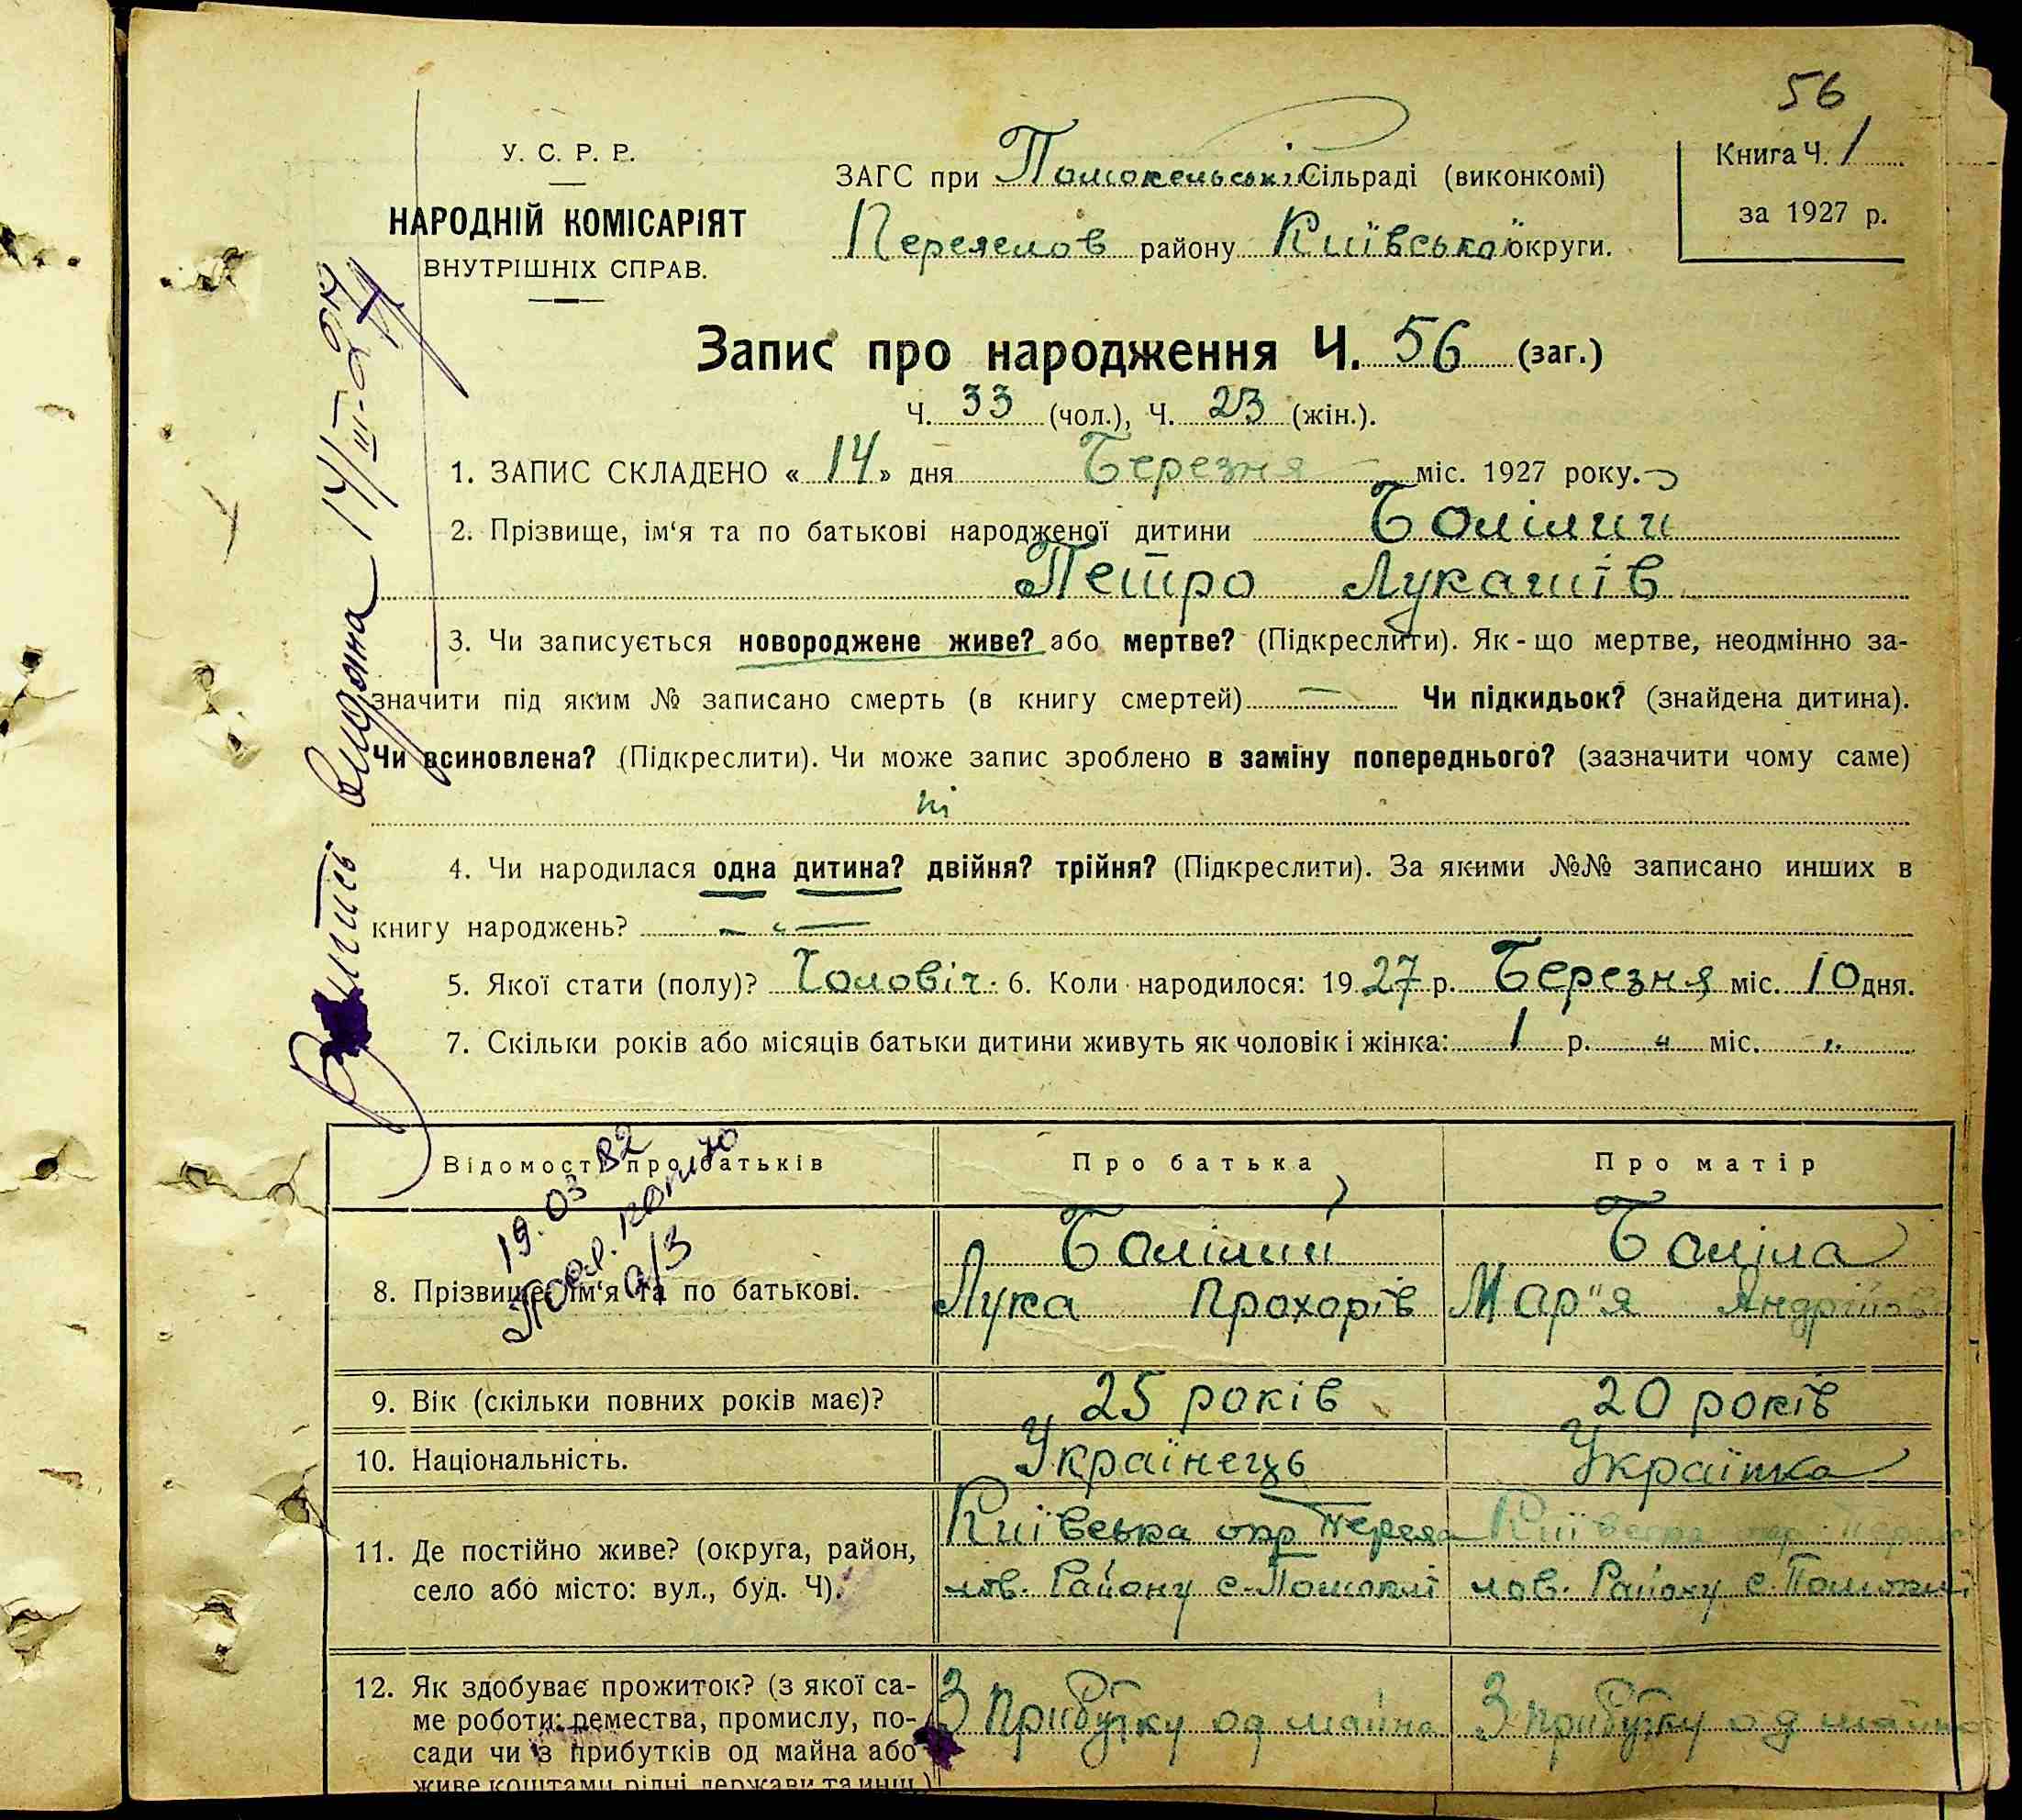 56
У. С. Р. Р.
НАРОДНІЙ КОМІСАРІЯТ
ВНУТРІШНІХ СПРАВ.
ЗАГС при Помокельські Сільраді (виконкомі)
Переяслов району Київської округи.
Книга Ч. 1
за 1927 р.
Запис про народження Ч. 56 (заг.)
Ч. 33 (чол.), Ч. 23 (жін.).
1. ЗАПИС СКЛАДЕНО « 14 » дня Березня міс. 1927 року.
2. Прізвище, ім'я та по батькові народженої дитини
Петро Лукашів
3. Чи записується новороджене живе? або мертве? (Підкреслити). Як-що мертве, неодмінно за-
значити під яким № записано смерть (в книгу смертей) — Чи підкидьок? (знайдена дитина).
Чи всиновлена? (Підкреслити). Чи може запис зроблено в заміну попереднього? (зазначити чому саме)
ні
4. Чи народилася одна дитина? двійня? трійня? (Підкреслити). За якими №№ записано инших в
книгу народжень? — „ —
5. Якої стати (полу)? Чоловіч. 6. Коли народилося: 1927 р. Березня міс. 10 дня.
7. Скільки років або місяців батьки дитини живуть як чоловік і жінка: 1 р. „ міс. „
Витпсь видана 14/III-27
Відомості про батьків
Про батька
Про матір
19.03 82
копію
а/з
8. Прізвище, ім'я та по батькові.
Лука Прохорів
Мар"я Андріївна
9. Вік (скільки повних років має)?
25 років
20 років
10. Національність.
Українець
Українка
11. Де постійно живе? (округа, район,
село або місто: вул., буд. Ч).
Київська окр Перея
лов. Району с.
Київська окр. Перея
лов. Району с.
12. Як здобуває прожиток? (з якої са-
ме роботи: ремества, промислу, по-
сади чи з прибутків од майна або
живе коштами рідні, держави та инш.)
З прибутку од майна
З прибутку од майна